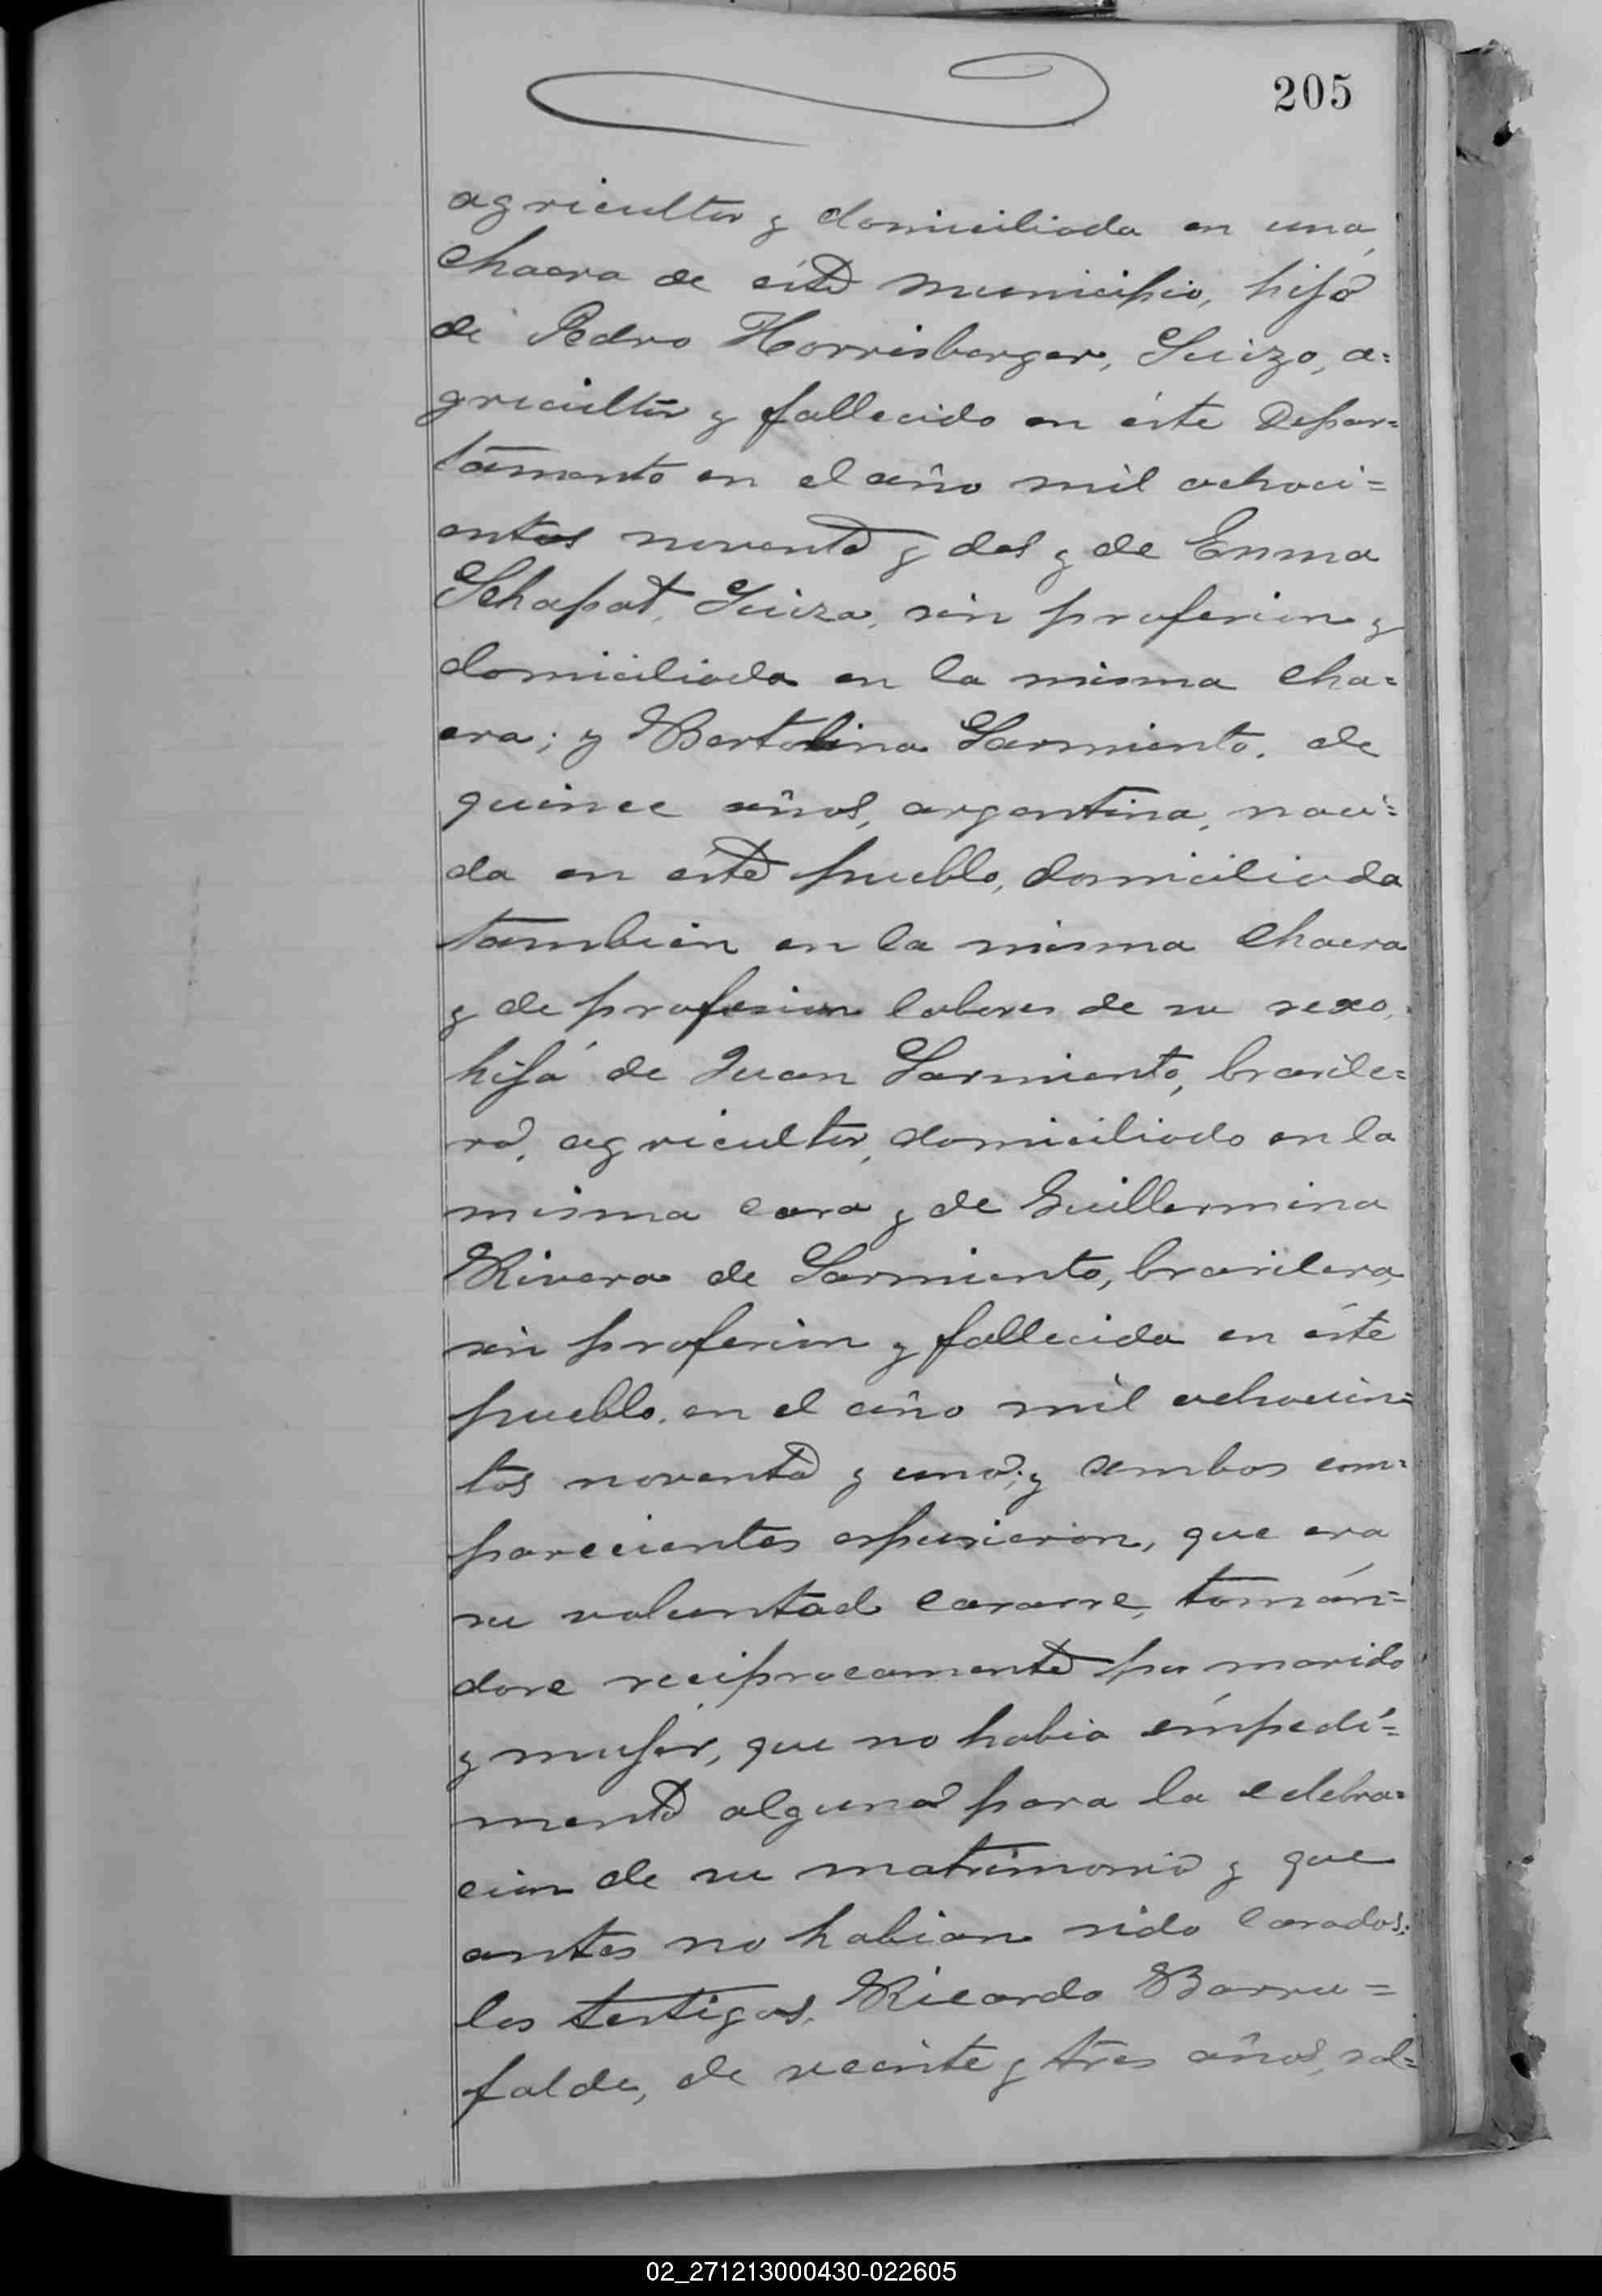 205
agricultor y domiciliado en una
chacra de éste Municipio, hijo
de Pedro Horrisberger, Suizo, a=
gricultor y fallecido en éste Depar=
tamento en el año mil ochoci=
entos noventa y dos y de Emma
Schapat, Suiza, sin profesion y
domiciliada en la misma cha=
cra; y Bertolina Sarmiento, de
quince años, argentina, naci=
da en éste pueblo, domiciliada
tambien en la misma chacra
y de profesion labores de su sexo,
hija de Juan Sarmiento, brasile=
ro, agricultor, domiciliado en la
misma casa y de Guillermina
Rivera de Sarmiento, brasilera,
sin profesion y fallecida en éste
pueblo, en el año mil ochocien=
tos noventa y uno; y ambos com=
parecientes espusieron, que era
su voluntad casarse, tomán=
dose reciprocamente por marido
y mujér, que no habia impedi=
mento alguno para la celebra=
cion de su matrimonio y que
antes no habian sido casados;
los testigos, Ricardo Barru=
falde, de veinte y tres años, sol=
02_271213000430-022605